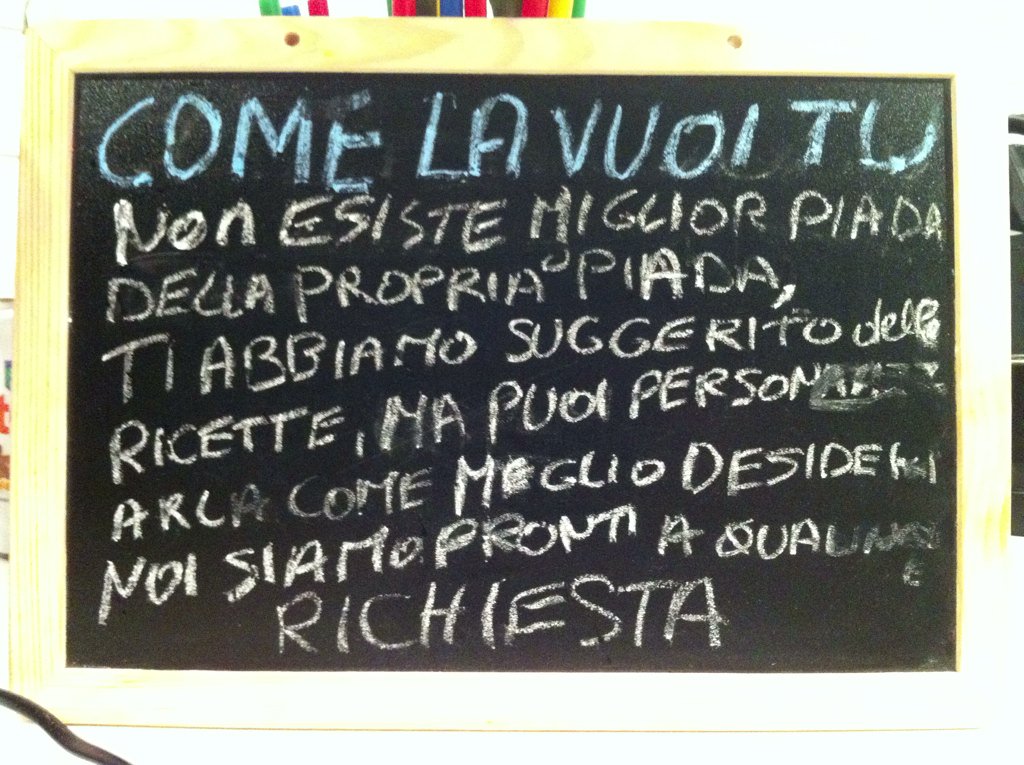 COME LA VUOI TU
NON ESISTE MIGLIOR PIADA
DELLA PROPRIA PIADA,
TI ABBIAMO SUGGERITO delle
RICETTE, MA PUOI PERSONALIZZ
ARLA COME MEGLIO DESIDERI
NOI SIAMO PRONTI A QUALUNQU
E
RICHIESTA